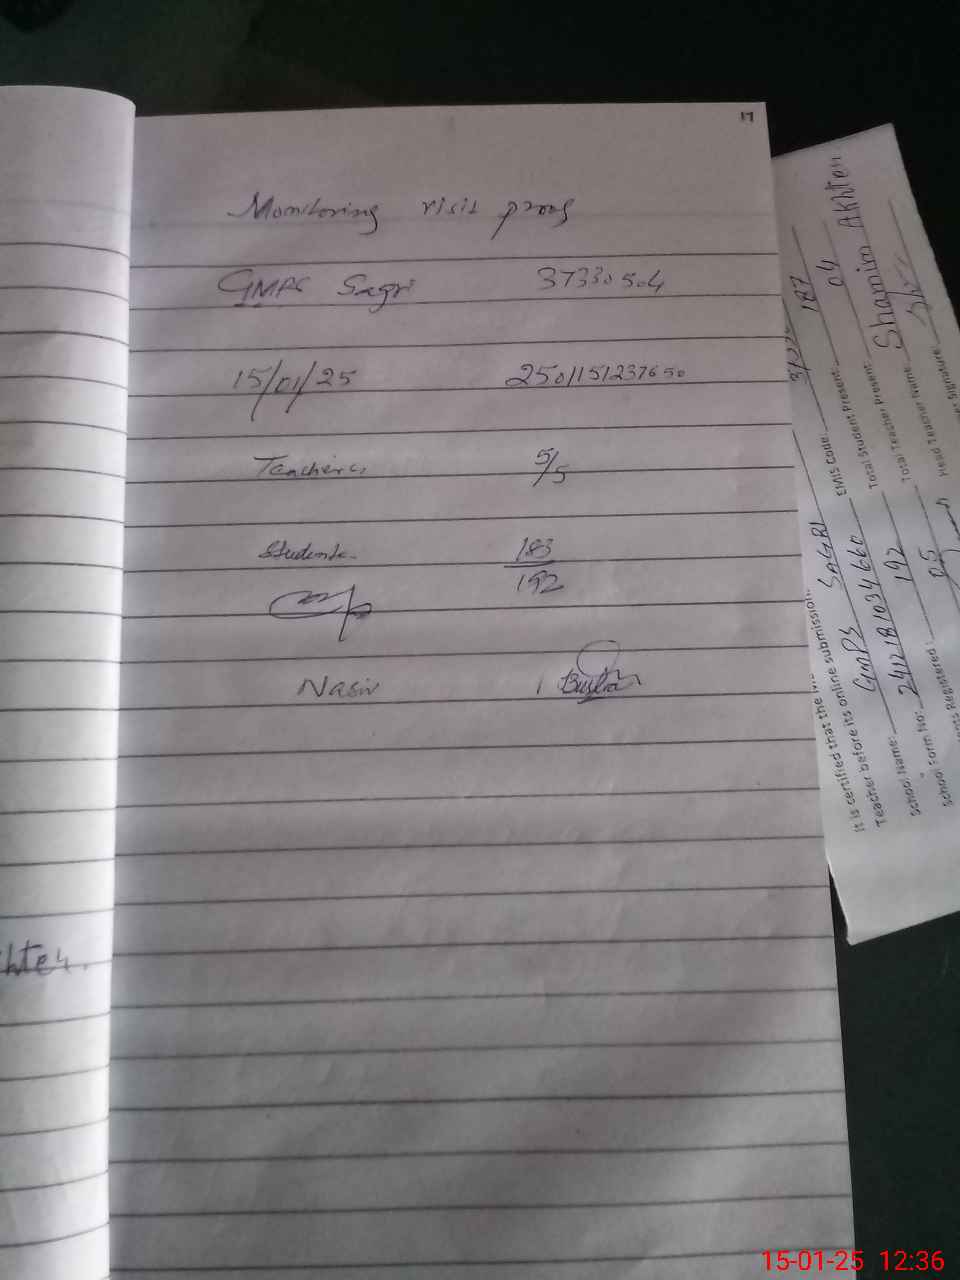 17
Monitoring visit proof
GMPS Sagri 37330504
15/01/25 250115123765 0
Teachers 5/5
Students 183
192
Nasir Bushra
hter.
It is certified that the
Teacher before its online submission.
School Name: GMPS SAGRI EMIS Code: 187
School Form No: 2412181034660 Total Student Present: 04
Registered: 192 Total Teacher Present: Shamim AKhter
05 Total Teacher Name:
Head Teacher Signature:
15-01-25 12:36